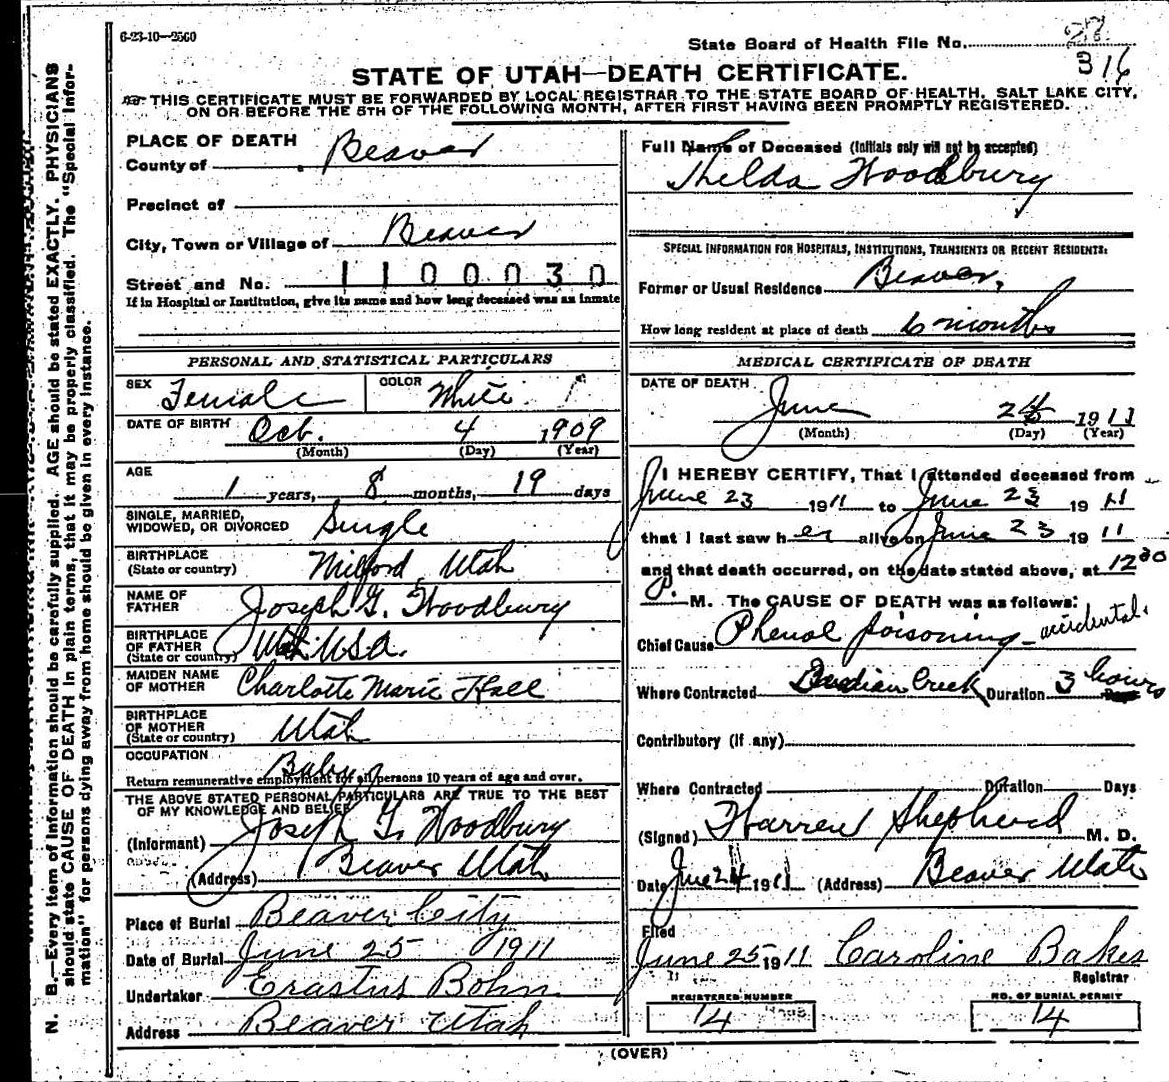 6-23-10—2500
State Board of Health File No.
316
STATE OF UTAH—DEATH CERTIFICATE.
THIS CERTIFICATE MUST BE FORWARDED BY LOCAL REGISTRAR TO THE STATE BOARD OF HEALTH, SALT LAKE CITY,
ON OR BEFORE THE 5TH OF THE FOLLOWING MONTH, AFTER FIRST HAVING BEEN PROMPTLY REGISTERED.
N. B.—Every item of information should be carefully supplied. AGE should be stated EXACTLY. PHYSICIANS
should state CAUSE OF DEATH in plain terms, that it may be properly classified. The "Special Infor-
mation" for persons dying away from home should be given in every instance.
PLACE OF DEATH
County of Beaver
Precinct of
City, Town or Village of Beaver
Street and No. 1100030
If in Hospital or Institution, give its name and how long deceased was an inmate
PERSONAL AND STATISTICAL PARTICULARS
SEX Female COLOR White
DATE OF BIRTH Oct. 4 1909
(Month) (Day) (Year)
AGE
1 years, 8 months, 19 days
SINGLE, MARRIED,
WIDOWED, OR DIVORCED Single
BIRTHPLACE
(State or country) Milford, Utah
NAME OF
FATHER Joseph G. Woodbury
BIRTHPLACE
OF FATHER
(State or country) Utah USA.
MAIDEN NAME
OF MOTHER Charlotte Marie Hall
BIRTHPLACE
OF MOTHER
(State or country) Utah
OCCUPATION Baby
Return remunerative employment for all persons 10 years of age and over.
THE ABOVE STATED PERSONAL PARTICULARS ARE TRUE TO THE BEST
OF MY KNOWLEDGE AND BELIEF
(Informant) Joseph G. Woodbury
(Address) Beaver Utah
Place of Burial Beaver City
Date of Burial June 25 1911
Undertaker Erastus Bohn
Address Beaver Utah
Full Name of Deceased (Initials only will not be accepted)
Thelda Woodbury
SPECIAL INFORMATION FOR HOSPITALS, INSTITUTIONS, TRANSIENTS OR RECENT RESIDENTS:
Former or Usual Residence Beaver,
How long resident at place of death 6 months
MEDICAL CERTIFICATE OF DEATH
DATE OF DEATH
June 1911
(Month) (Day) (Year)
I HEREBY CERTIFY, That I attended deceased from
June 23 1911 to June 23 1911
that I last saw her alive on June 23 1911
and that death occurred, on the date stated above, at 12 30
P. M. The CAUSE OF DEATH was as follows:
Chief Cause Phenol poisoning - accidental.
Where Contracted Indian Creek Duration 3 hours
Contributory (if any)
Where Contracted Duration Days
(Signed) Warren Shepherd M. D.
Date June 24 1911 (Address) Beaver Utah
Filed
June 25 1911 Caroline Bakes
Registrar
REGISTERED NUMBER
14
NO. OF BURIAL PERMIT
14
(OVER)